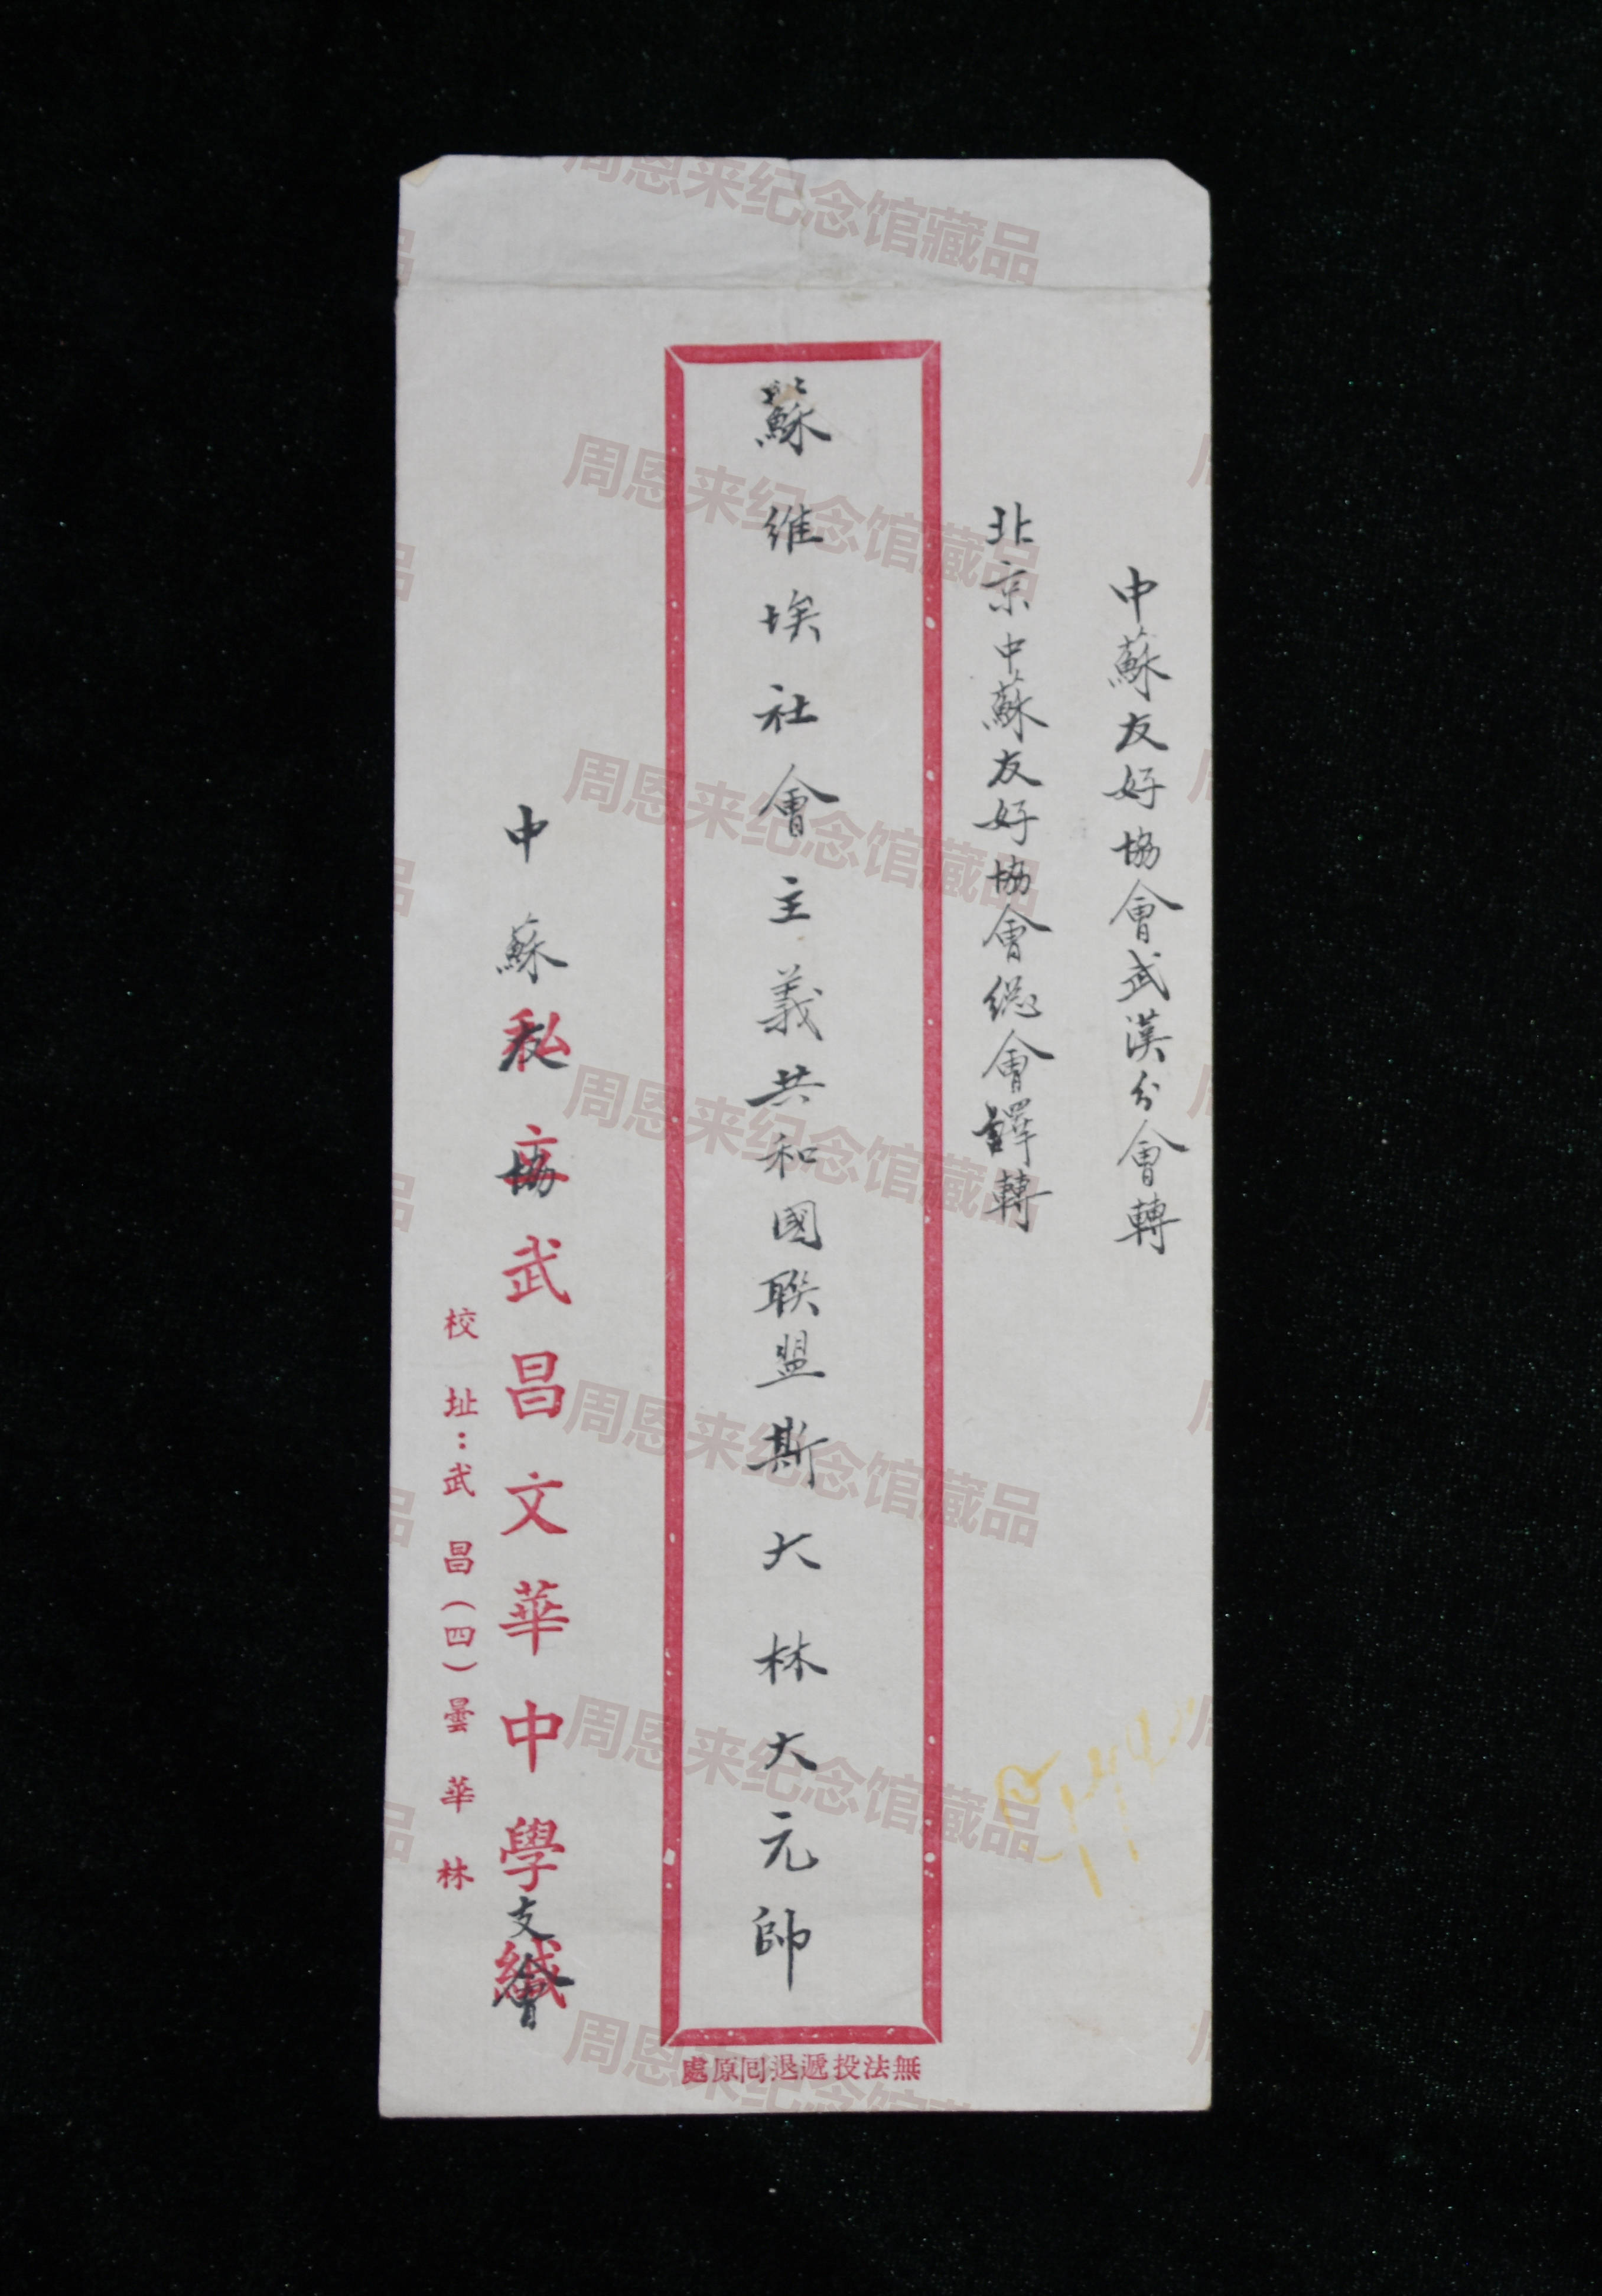 中蘇友好協會武漢分會轉
北京中蘇友好協會総會譯轉
蘇維埃社會主義共和國聯盟斯大林大元帥
中蘇友協武昌文華中學支會
校址：武昌（四）曇華林
無法投遞退回原處
周恩来纪念馆藏品